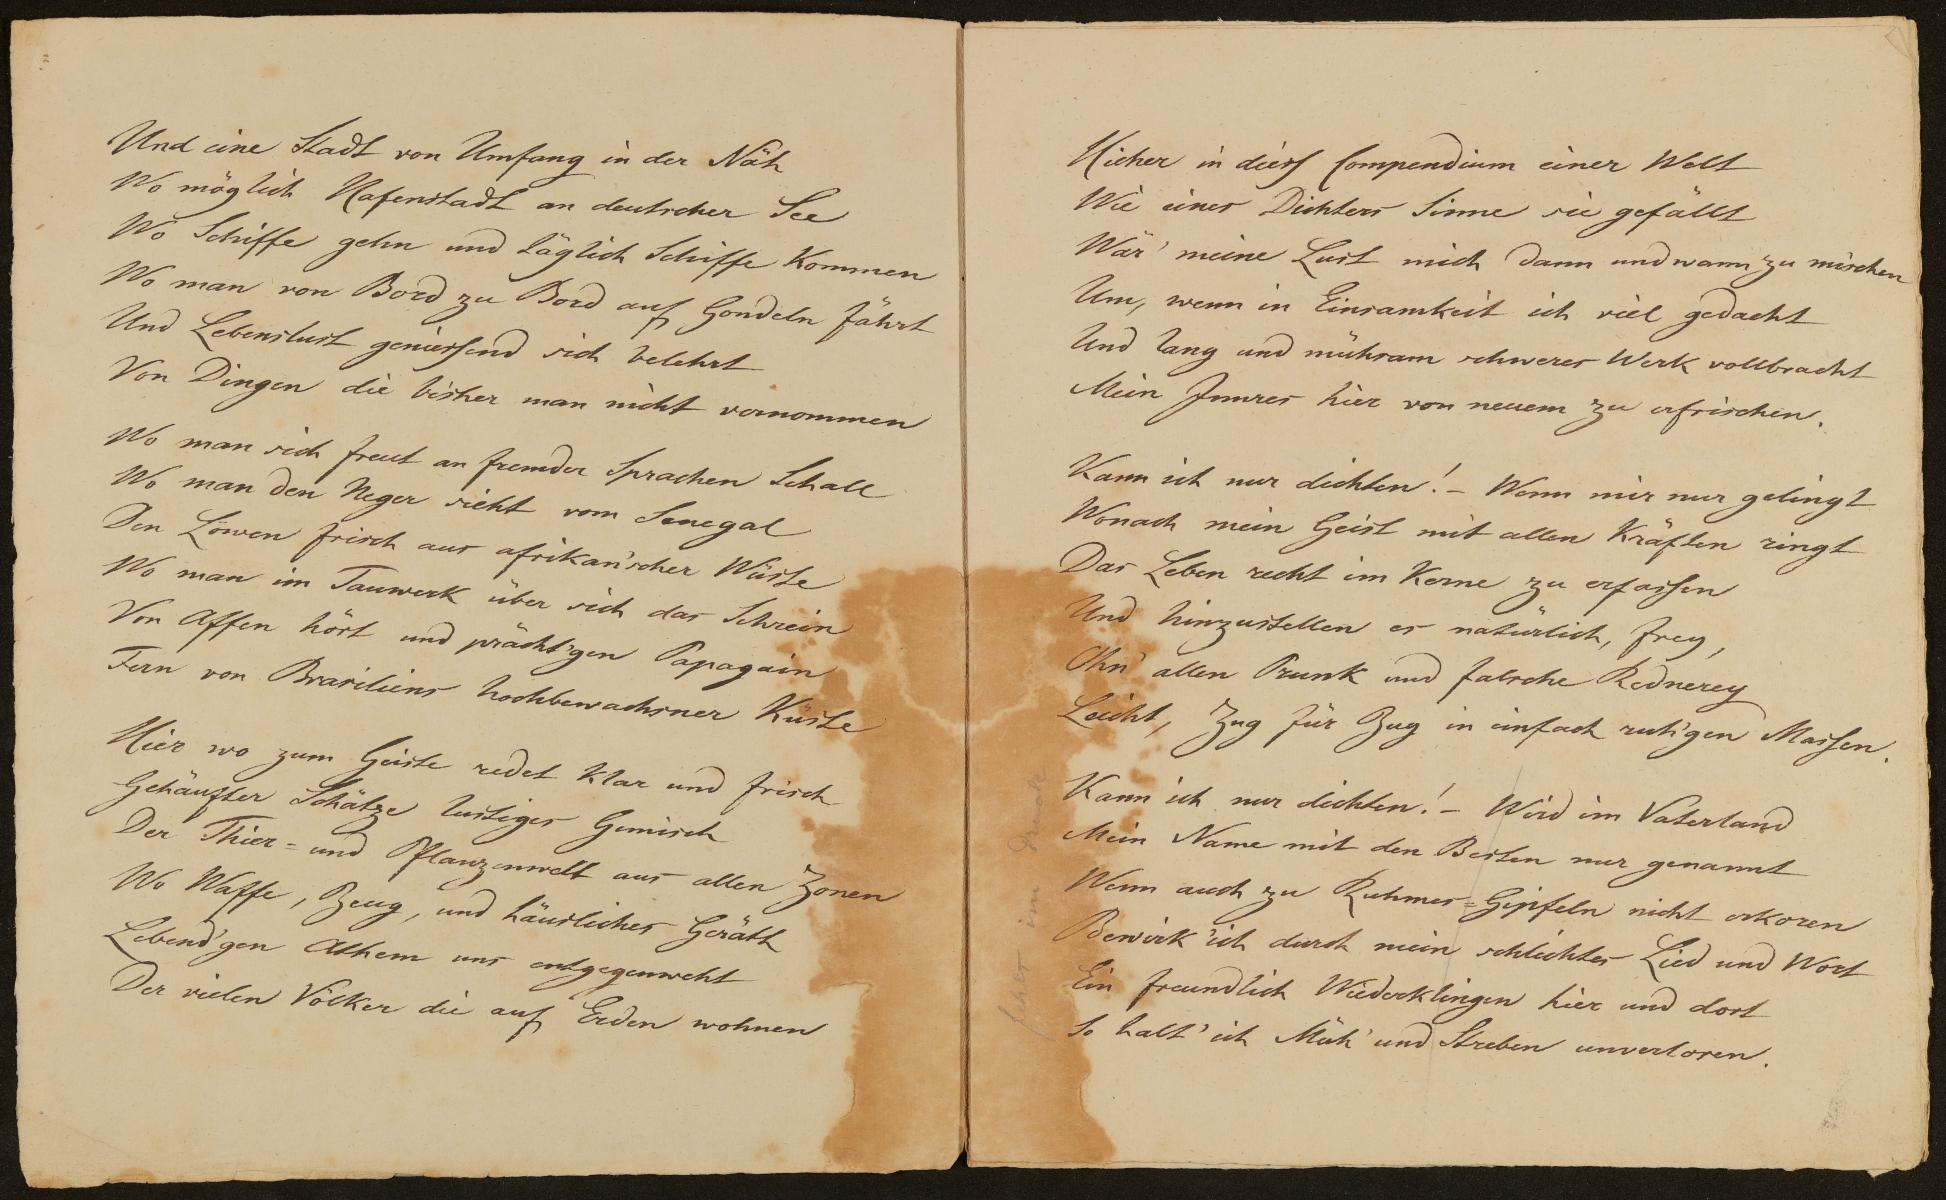 Und eine Stadt von Umfang in der Näh
Wo möglich Hafenstadt an deutscher See
Wo Schiffe gehn und täglich Schiffe kommen
Wo man von Bord zu Bord auf Gondeln fährt
Und Lebenslust geniessend sich belehrt
Von Dingen die bisher man nicht vernommen
Wo man sich freut an fremder Sprachen Schall
Wo man den Neger sieht vom Senegal
Den Löwen frisch aus afrikan'scher Wüste
Wo man im Tauwerk über sich das Schrein
Von Affen hört und prächt'gen Papagain
Fern von Brasiliens hochbewachsner Küste
Hier wo zum Geiste redet klar und frisch
Gehäufter Schätze lustiges Gemisch
Der Thier- und Pflanzenwelt aus allen Zonen
Wo Waffe, Zeug, und häusliches Geräth
Lebend'gen Athem uns entgegenweht
Der vielen Völker die auf Erden wohnen
Hieher in diess Compendium einer Welt
Wie eines Dichters Sinne sie gefällt
Wär' meine Lust mich dann und wann zu mischen
Um, wenn in Einsamkeit ich viel gedacht
Und lang und mühsam schweres Werk vollbracht
Mein Innres hier von neuem zu erfrischen.
Kann ich nur dichten! – Wenn mir nur gelingt
Wonach mein Geist mit allen Kräften ringt
Das Leben recht im Kerne zu erfassen
Und hinzustellen es natürlich, frey,
Ohn' allen Prunk und falsche Rednerey
Leicht, Zug für Zug in einfach ruh'gen Massen.
Kann ich nur dichten! – Wird im Vaterland
Mein Name mit den Besten nur genannt
Wenn auch zu Ruhmes-Gipfeln nicht erkoren
Bewirk' ich durch mein schlichtes Lied und Wort
Ein freundlich Wiederklingen hier und dort
So halt' ich Müh' und Streben unverloren.
im Druck